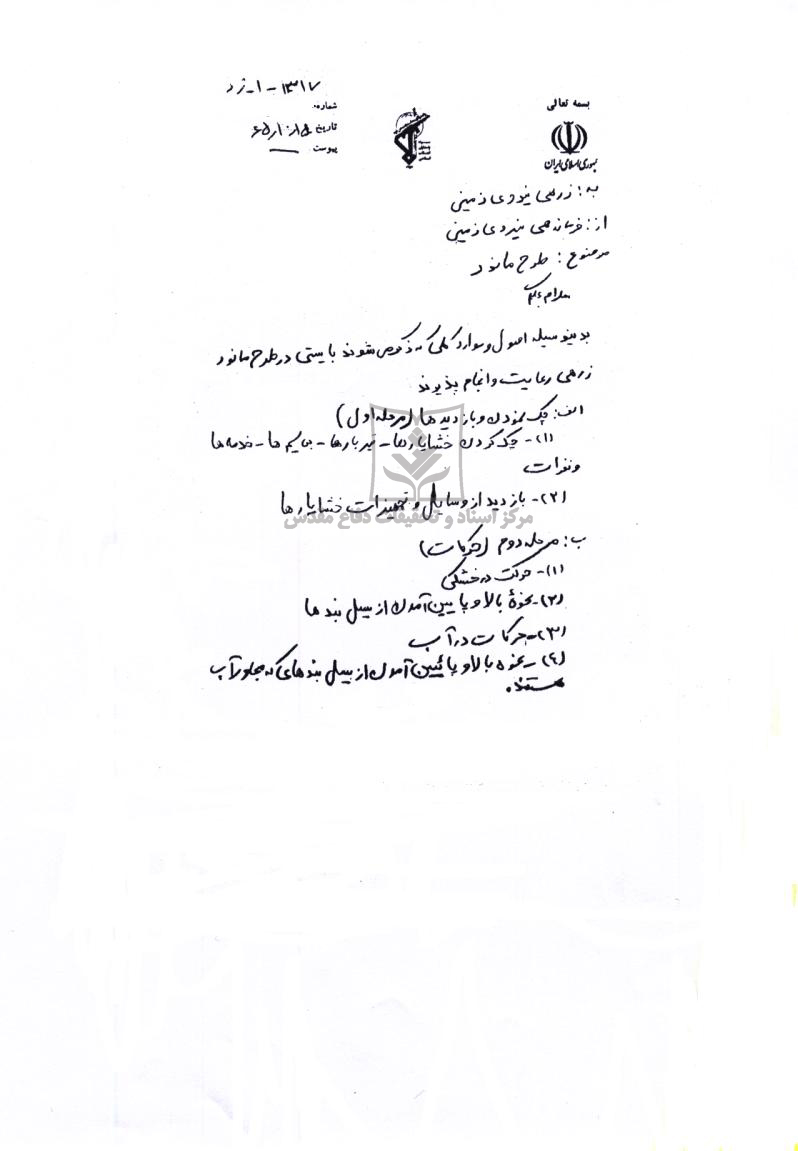 بسمه تعالی
جمهوری اسلامی ایران
۱۳۱۷ - ۱ - ز ر د
شماره:
تاریخ
پیوست
به: زرهی نیروی زمینی
از: فرماندهی نیروی زمینی
موضوع: طرح مانور
سلام علیکم
بدینوسیله اصول و موارد کلی که ذکر می شوند بایستی در طرح مانور
زرهی رعایت و انجام پذیرند
الف: چک نمودن و بازدید ها (مرحله اول)
(۱)- چک کردن خشایارها - تیربارها - بی سیم ها - خدمه ها
و نفرات
(۲)- بازدید از وسایل و تجهیزات خشایارها
مرکز اسناد و تحقیقات دفاع مقدس
ب: مرحله دوم (حرکات)
(۱)- حرکت در خشکی
(۲)- نحوۀ بالا و پایین آمدن از سیل بند ها
(۳)- حرکات در آب
(٤)- نحوه بالا و پائین آمدن از سیل بند های که مجاور آب
هستند.